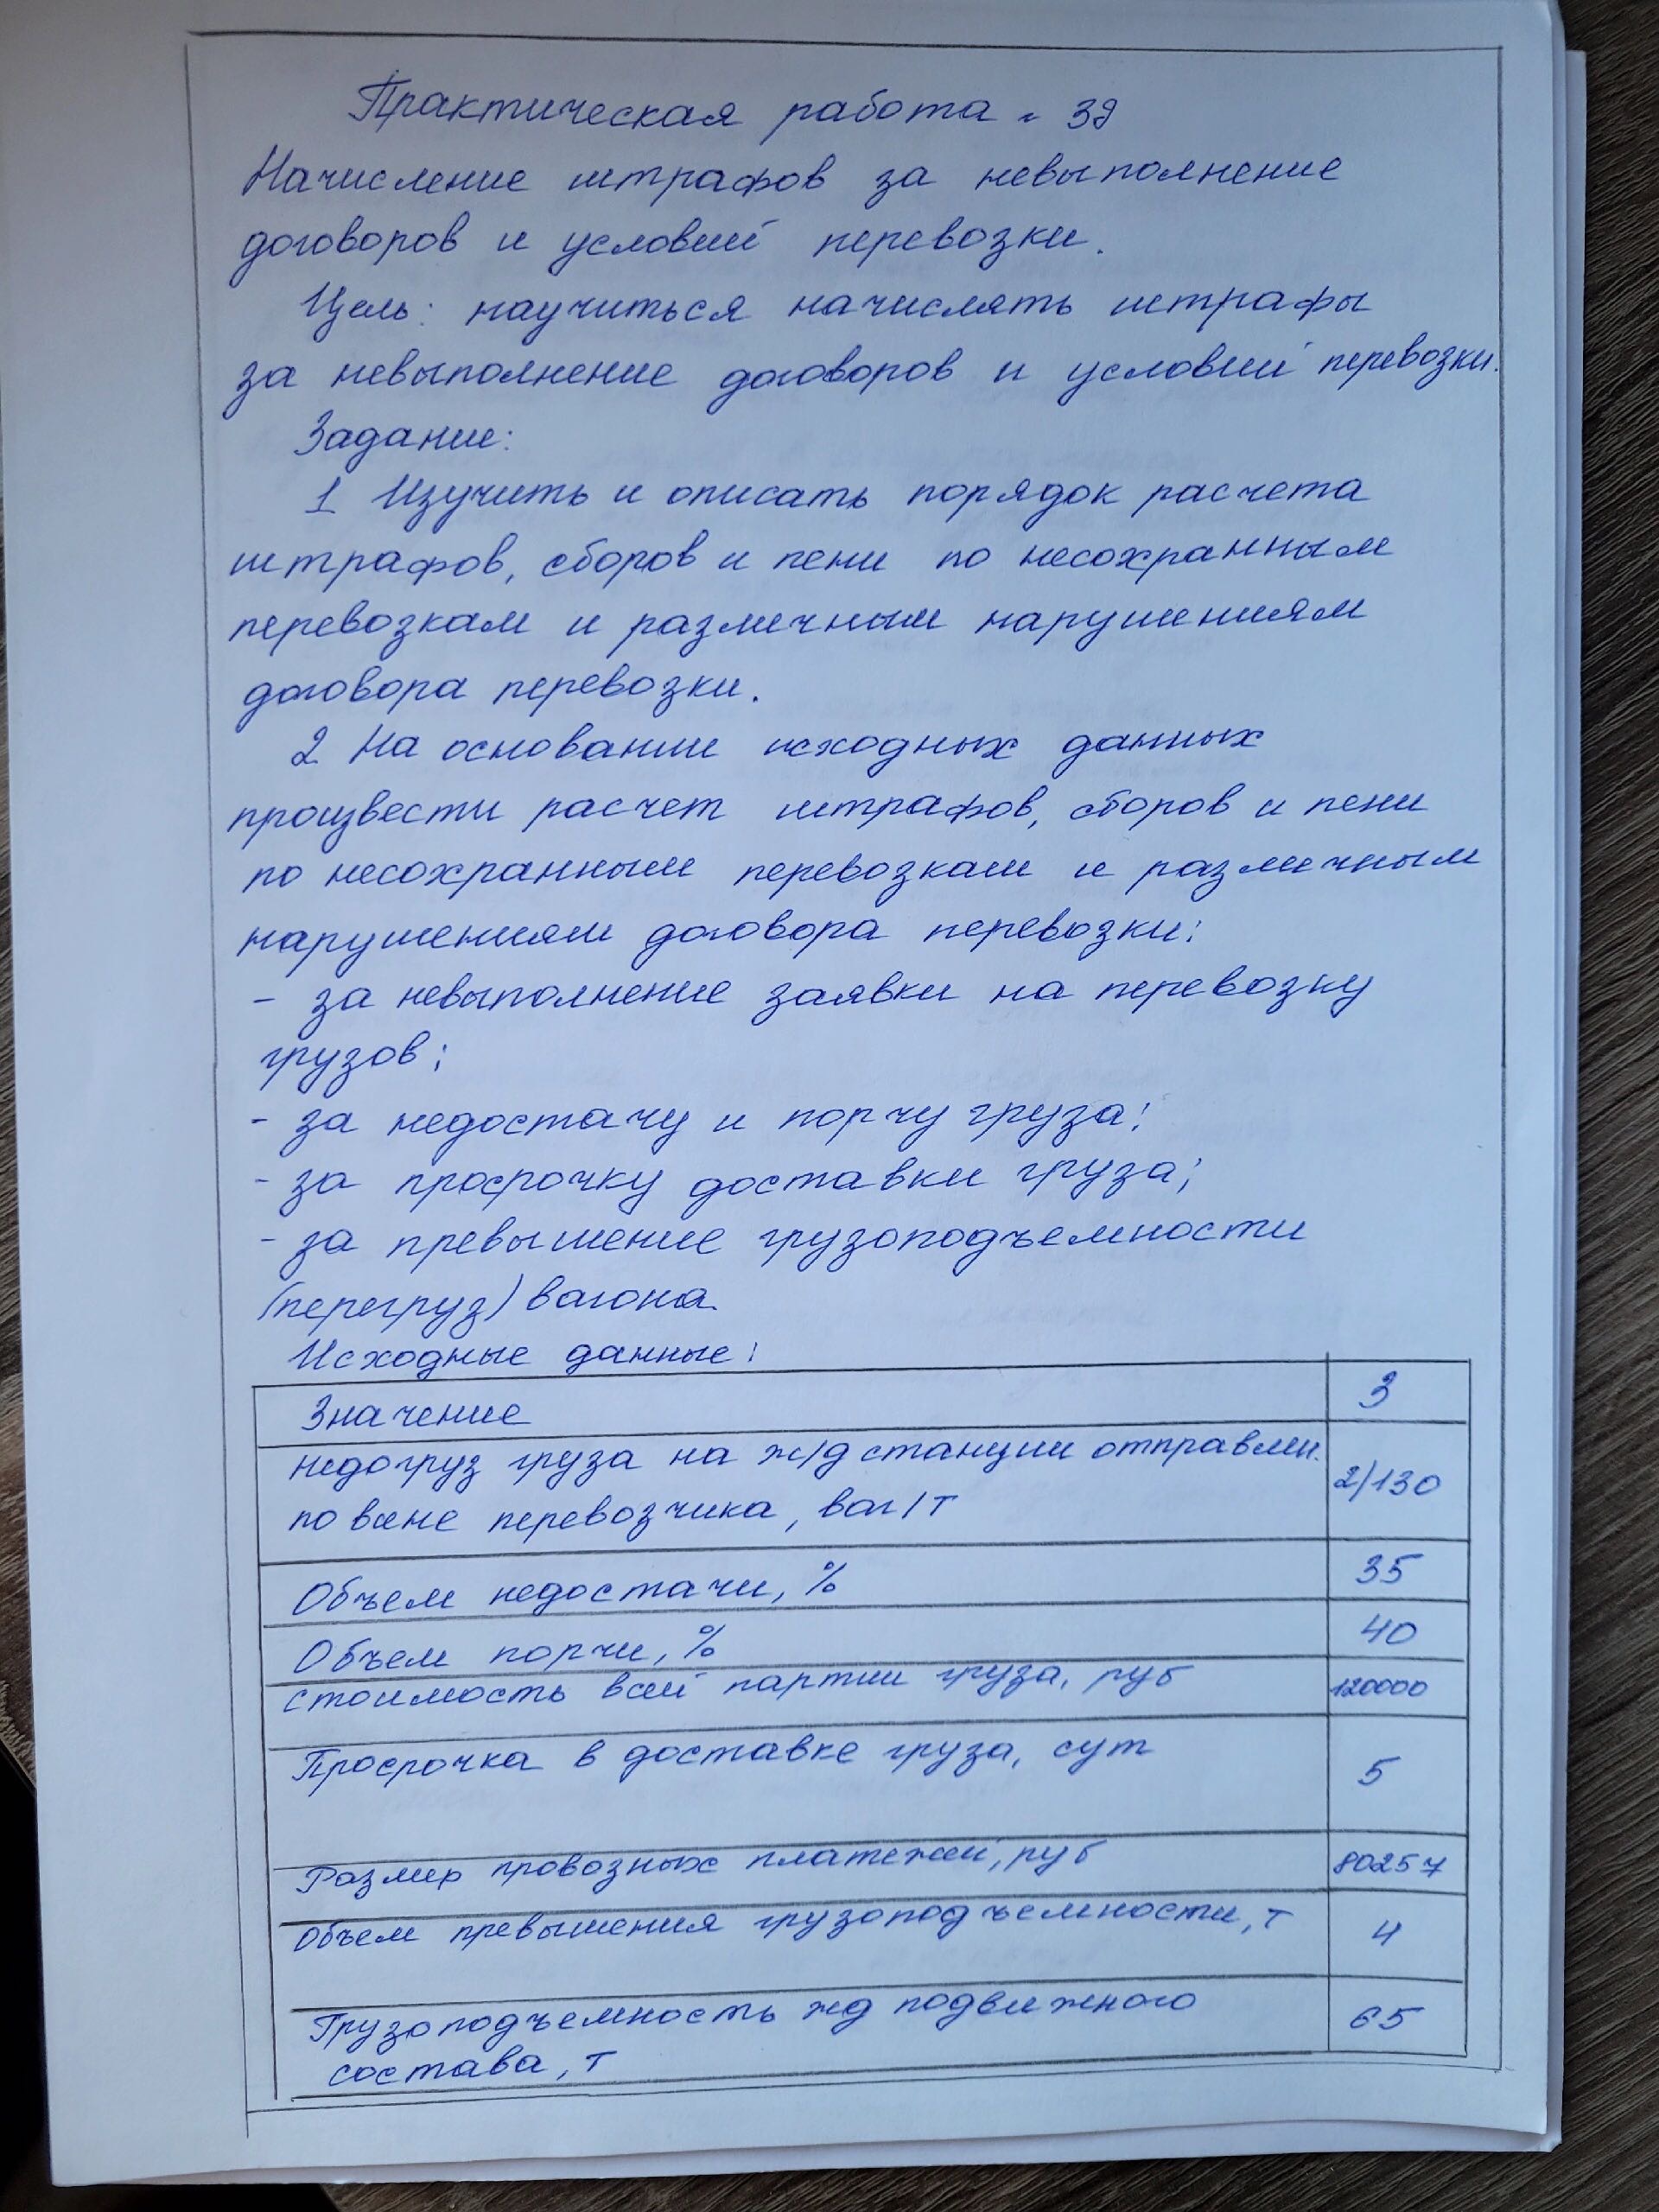 Практическая работа № 39
Начисление штрафов за невыполнение
договоров и условий перевозки.
Цель: научиться начислять штрафы
за невыполнение договоров и условий перевозки.
Задание:
1 Изучить и описать порядок расчета
штрафов, сборов и пени по несохранным
перевозкам и различным нарушениям
договора перевозки.
2 На основании исходных данных
произвести расчет штрафов, сборов и пени
по несохранным перевозкам и различным
нарушениям договора перевозки:
- за невыполнение заявки на перевозку
грузов;
- за недостачу и порчу груза;
- за просрочку доставки груза;
- за превышение грузоподъемности
(перегруз) вагона.
Исходные данные:
Значение 3
недогруз груза на ж/д станции отправлен.
по вине перевозчика, ваг/т 2/130
Объем недостачи, % 35
Объем порчи, % 40
стоимость всей партии груза, руб 120000
Просрочка в доставке груза, сут 5
Размер провозных платежей, руб 80257
Объем превышения грузоподъемности, т 4
Грузоподъемность жд подвижного
состава, т 65